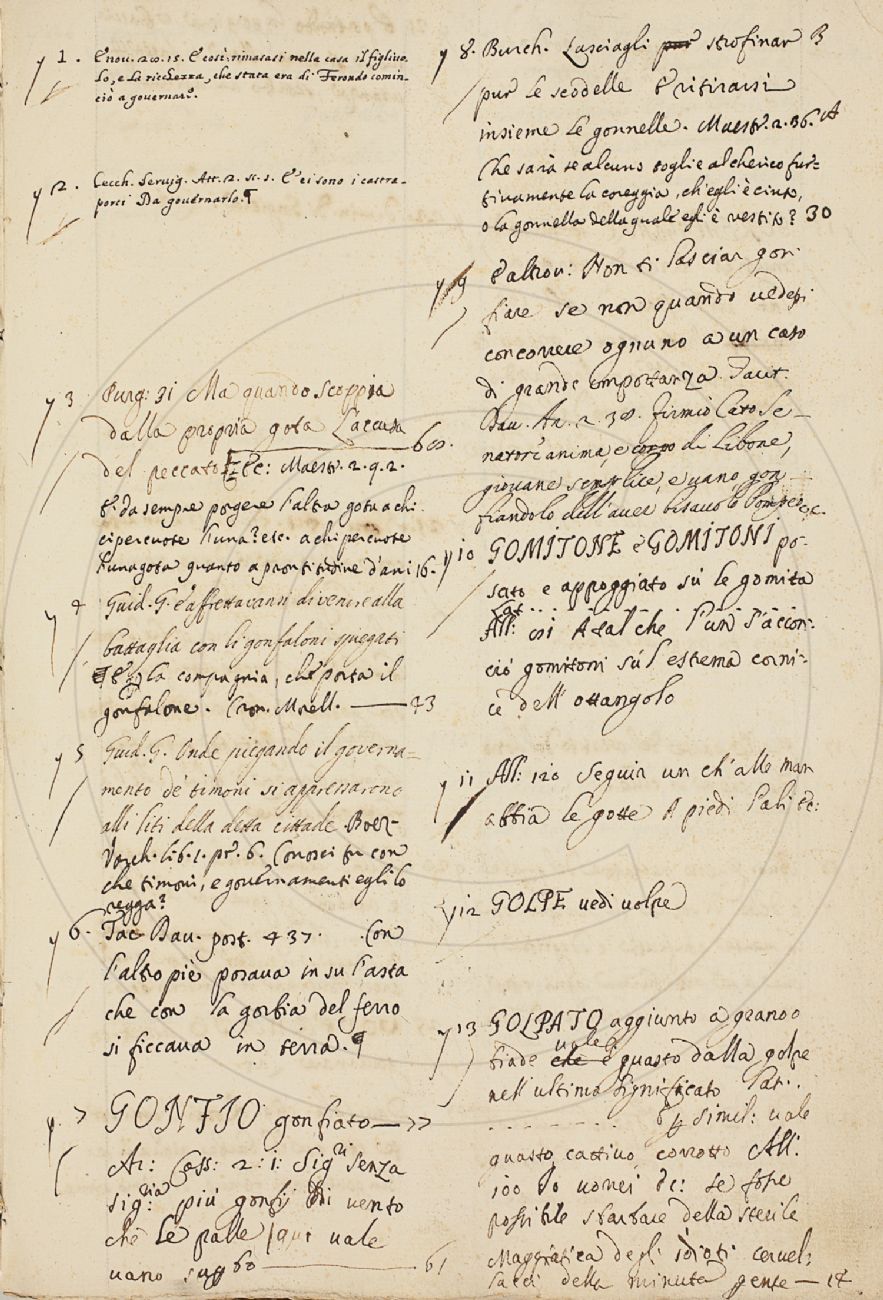 y 1. E nou. 20. 15. E così rimasasi nella casa il figliuo-
lo, e la ricchezza, che stata era di Ferondo comin-
ciò a governare.
y 2. Cecch. Servig. Att. 2. sc. 1. E ci sono i castra-
porci Da governarlo.¶
y 3. Purg: 31 Ma quando scoppia
dalla propria gota L'accusa
del peccato Ec: Maestr. 2. 9. 2. 60.
E da sempre porgere l'altra gota a chi
ci percuote l'una? etc. a chi percuote
l'una gota quanto a prontitudine d'ani 16.
y 4 Guid. G. e affrettavanni di venire alla
battaglia con li gonfaloni spiegati
la compagnia, che porta il
gonfalone. Cron. Mrell. 43
y 5 Guid. G. Onde piegando il governa-
mento de' timoni si appressarono
alli liti della detta cittade Boez-
Varch. lib. 1. pr. 6. Conosci tu con
che timoni, e governamenti egli lo
regga?
y 6. Tac Dav. post. 437. Con
l'altro piè posava in su l'asta
che con la gorbia del ferro
si ficcava in terra.¶
y. 7 GONFIO gonfiato — 77
Ar: Cass: 2: 1: Sigri senza
sigria: più gonfj di vento
che Le palle | qui vale
vano 60 — 61
y 8. Burch. Lasciagli pur strofinar B
pur le scodelle E ritirarsi
insieme le gonnelle. Maestr. 2. 36. A
Che sarà se alcuno toglie al cherico fur-
tivamente la coreggia, ch'egli è cinto,
o la gonnella della quale egli è vestito? 30
y 9 E altrov: Non ti lasciar gon-
fiare se non quando vedessi
concorrere ognuno a un caso
di grande importanza. Tacit.
Dav. An. 2. 38. firmio Cato Se-
natore anima, e corpo di Libone,
giovane semplice, e vano, gon-
fiandolo dell'aver bisavolo Pompeo, ec.
y 10 GOMITONE e GOMITONI po-
sato e appoggiato sù le gomita
Lat...
All: così A tal che l'un s'accon-
ciò gomitoni sù l'estrema corni-
ce dell'ottangolo
y 11 All: 120 Seguia un ch'alle man
abbia le gotte A piedi l'ali &c:
y 12 GOLPE vedi volpe
y 13 GOLPATO aggiunto a grano o
biade vale che è guasto dalla golpe
nell'ultimo significato Lat..
........ E simil: vale
guasto, cattivo, corrotto All:
100 Io vorrei &c: se fosse
possibile sbarbare della sterile
Maggiatica degli idioti cervel-
lacci della minuta gente — 17